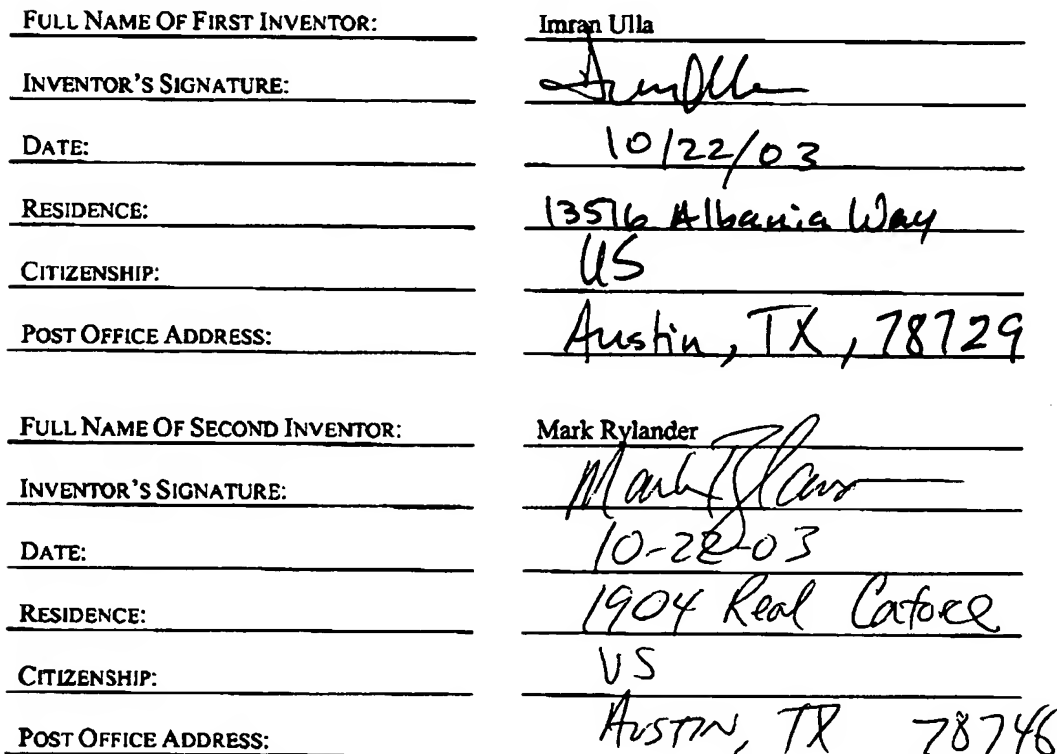 FULL NAME OF FIRST INVENTOR: Imran Ulla
INVENTOR'S SIGNATURE:
DATE: 10/22/03
RESIDENCE: 13516 Albania Way
CITIZENSHIP: US
POST OFFICE ADDRESS: Austin, TX, 78729
FULL NAME OF SECOND INVENTOR: Mark Rylander
INVENTOR'S SIGNATURE: Mark
DATE: 10-22-03
RESIDENCE: 1904 Real Catorce
CITIZENSHIP: US
POST OFFICE ADDRESS: AUSTIN, TX 78746